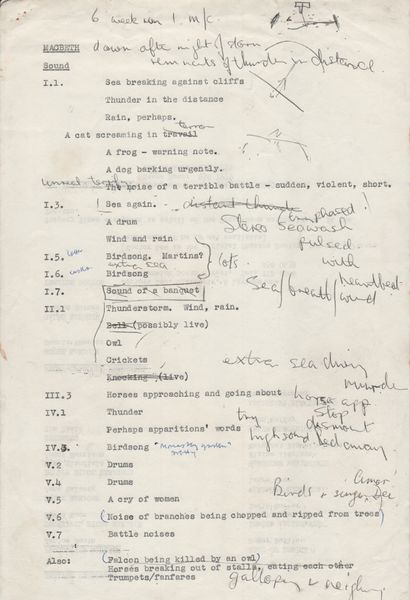 6 week run 1 m/c
MACBETH dawn after night of storm
Sound remnants of thunder in distance.
I.1. Sea breaking against cliffs
Thunder in the distance
Rain, perhaps.
terror
A cat screaming in travail
A frog - warning note.
A dog barking urgently.
The noise of a terrible battle - sudden, violent, short.
I.3. ! Sea again. distant thunder (unphased)!
A drum Stereo Seawash
Wind and rain pulsed.
I.5. Birdsong. Martins? lots. with
extra sea
I.6. Birdsong
I.7. Sound of a banquet Sea/breath/heartbeat
wind
II.1 Thunderstorm. Wind, rain.
Bell (possibly live)
Owl
Crickets extra sea during
Knocking (live) murder
III.3 Horses approaching and going about horses app.
IV.1 Thunder try stop
dismount
Perhaps apparitions' words high sound led away
IV.3. Birdsong "monastery garden"
V.2 Drums
V.4 Drums
V.5 A cry of women Birds + surge, sea
V.6 (Noise of branches being chopped and ripped from trees)
V.7 Battle noises
Also: (Falcon being killed by an owl)
Horses breaking out of stalls, eating each other
Trumpets/fanfares galloping & neighing